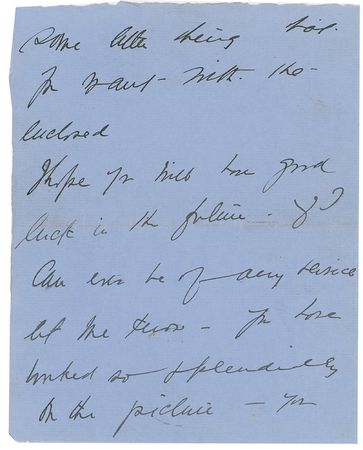 some
you want - with the
enclosed
I hope you will have good
luck in the future - If I
can ever be of any service
let me know - You have
worked so splendidly
on the picture - you